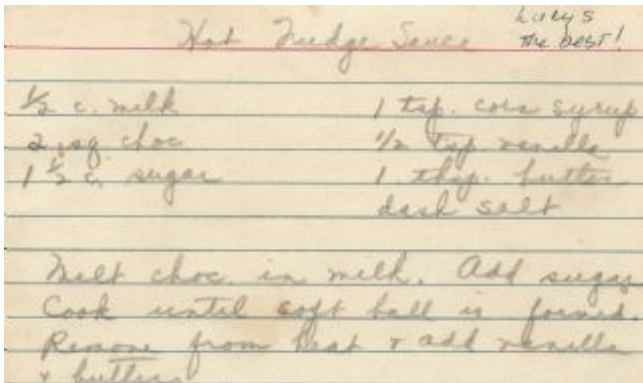 Hot Fudge Sauce
Lucy's
the best!
1/2 c. milk
2 sq choc
1 1/2 c. sugar
1 tsp. corn syrup
1/2 tsp. vanilla
1 tbsp. butter
dash salt
Melt choc. in milk. Add sugar
Cook until soft ball is formed.
Remove from heat & add vanilla
& butter